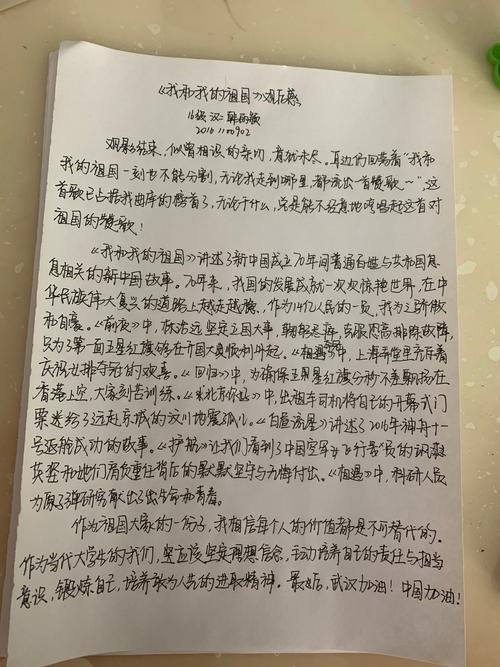 《我和我的祖国》观后感
16级 汉二 韩雨
2016 1100902
观影结束，似曾相识的亲切，意犹未尽。耳边仍回荡着“我和
我的祖国一刻也不能分割，无论我走到哪里，都流出一首赞歌~”，这
首歌已占据我曲库的榜首了，无论干什么，总是能不经意地哼唱起这首对
祖国的赞歌！
《我和我的祖国》讲述了新中国成立70年间普通百姓与共和国息
息相关的新中国故事。70年来，我国的发展成就一次次惊艳世界，在中
华民族伟大复兴的道路上越走越稳，作为14亿人民的一员，我为之骄傲
和自豪。《前夜》中，林治远坚定立国大事，克服困高排除故障，
只为了第一面五星红旗够在开国大典顺利升起。《相遇》中，上海弄堂里充斥着
庆祝女排夺冠的欢喜。《回归》中，为确保五星红旗分秒不差飘扬在
香港上空，大家刻苦训练。《北京你好》中，出租车司机将自己的开幕式门
票送给了远赴京城的汶川地震孤儿。《白昼流星》讲述了2016年神舟十一
号返航成功的故事。《护航》让我们看到了中国空军女飞行员的飒爽
英姿和她们肩负重任背后的默默坚守与无悔付出。《相遇》中，科研人员
为原子弹研究献出了出生命和青春。
作为祖国大家的一份子，我相信每个人的价值都是不可替代的。
作为当代大学生的我们，坚应该坚定理想信念，主动培养自己的责任与担当
意识，锻炼自己，培养敢为人先的进取精神。最后，武汉加油！中国加油！